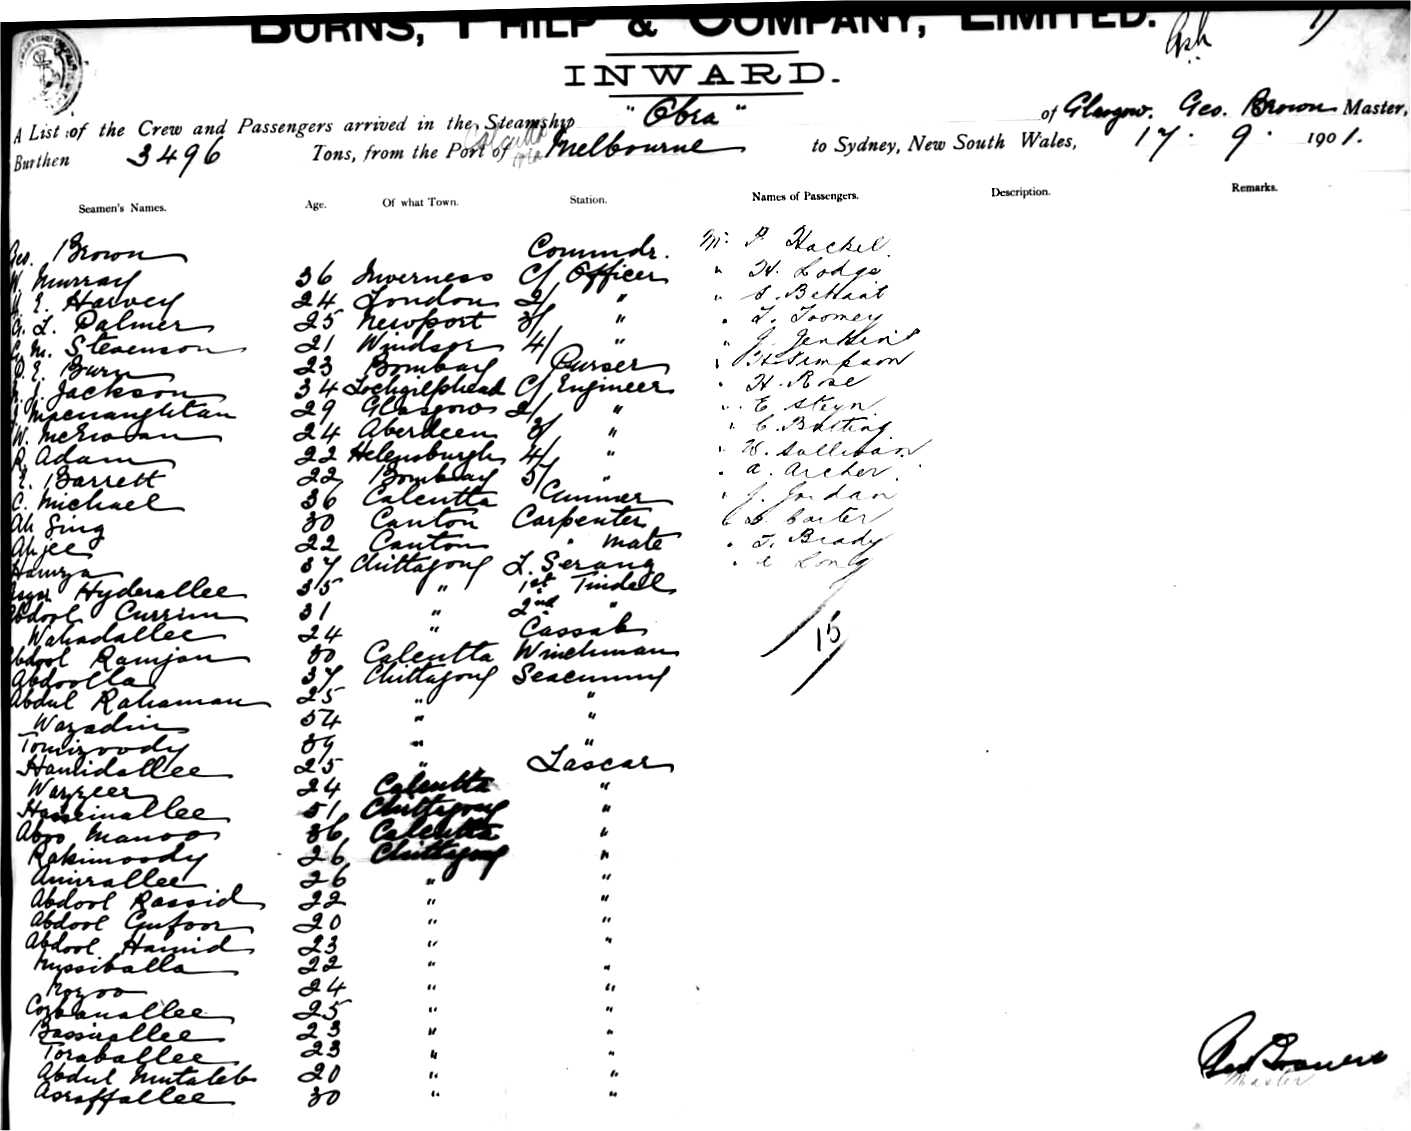 BURNS, PHILP & COMPANY, LIMITED.
INWARD.
A List of the Crew and Passengers arrived in the Steamship "Obra" of Glasgow. Geo. Brown Master,
Burthen 3496 Tons, from the Port of Calcutta via Melbourne to Sydney, New South Wales, 17. 9. 1901.
Seamen's Names. Age. Of what Town. Station. Names of Passengers. Description. Remarks.
Geo. Brown Commdr. Mr. P. Hackel
W. Murray 36 Inverness C/ Officer " H. Lodge
E. Harvey 24 London 2/ " " S.
G. L. Palmer 25 Newport 3/ " " T. Toomey
C. M. Stevenson 21 Windsor 4/ " " J. Jenkins
P. E. Burn 23 Bombay Purser " H. Simpson
Jackson 34 Lochgilphead C/ Engineer " H. Rose
J Macnaughtan 29 Glasgow 2/ " " E Steyn
W. McEwan 24 Aberdeen 3/ " " C. Butting
R Adam 22 Helensburgh 4/ " " H. Sullivan
E. Barrett 22 Bombay 5/ " " A. Archer
C. Michael 36 Calcutta Gunner " J. Jordan
Ah Sing 30 Canton Carpenter D. Carter
Ahjee 22 Canton " Mate " T. Brady
Hamza 37 Chittagong L. Serang " Long
Hyderallee 35 " 1st Tindell
Abdool Currim 31 " 2nd " 15
Wahadallee 24 " Cassab
Abdool Ramjan 30 Calcutta Winchman
Abdoolla 37 Chittagong Seacunny
Abdul Rahaman 25 " "
Wazadin 54 " "
Tomizoody 39 " "
Hamidallee 25 " Lascar
Wazzeer 24 Calcutta "
Hosseinallee 51 Chittagong "
Aboo Manoo 36 Calcutta "
Rakimoody 26 Chittagong "
Amirallee 26 " "
Abdool Rassid 22 " "
Abdool Gufoor 20 " "
Abdool Hamid 23 " "
Nussiballa 22 " "
Mozoo 24 " "
Corbanallee 25 " "
Bassirallee 23 " "
Toraballee 23 " "
Abdul Mutaleb 20 " "
Asraffallee 30 " "
Geo Brown
Master